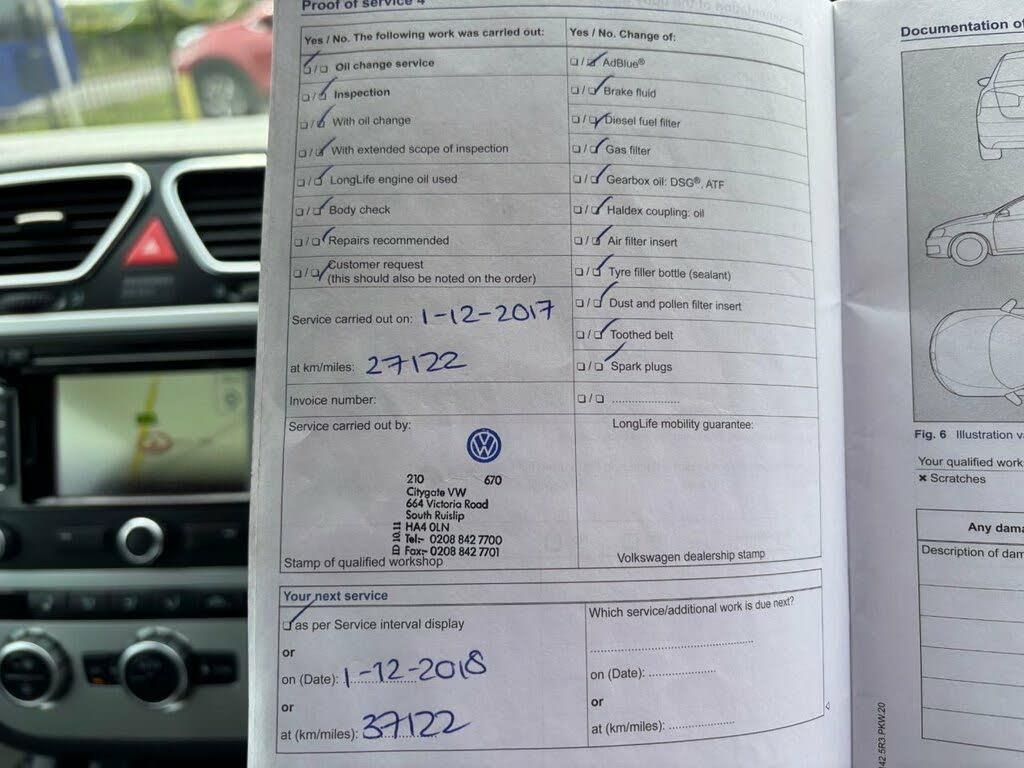 Proof of service 4
Yes / No. The following work was carried out:
☑ / ☐ Oil change service
☐ / ☑ Inspection
☐ / ☑ With oil change
☐ / ☑ With extended scope of inspection
☐ / ☑ LongLife engine oil used
☐ / ☑ Body check
☐ / ☑ Repairs recommended
☐ / ☑ Customer request
(this should also be noted on the order)
Service carried out on: 1-12-2017
at km/miles: 27122
Invoice number:
Service carried out by:
210 670
Citygate VW
664 Victoria Road
South Ruislip
HA4 0LN
Tel:- 0208 842 7700
Fax:- 0208 842 7701
ID 10.11
Stamp of qualified workshop
Yes / No. Change of:
☐ / ☑ AdBlue®
☐ / ☑ Brake fluid
☐ / ☑ Diesel fuel filter
☐ / ☑ Gas filter
☐ / ☑ Gearbox oil: DSG®, ATF
☐ / ☑ Haldex coupling: oil
☐ / ☑ Air filter insert
☐ / ☑ Tyre filler bottle (sealant)
☐ / ☑ Dust and pollen filter insert
☐ / ☑ Toothed belt
☐ / ☑ Spark plugs
☐ / ☐ ....................
LongLife mobility guarantee:
Volkswagen dealership stamp
Your next service
☑ as per Service interval display
or
on (Date): 1-12-2018
or
at (km/miles): 37122
Which service/additional work is due next?
........................................
on (Date): ....................
or
at (km/miles): ....................
Documentation of
Fig. 6 Illustration v
Your qualified work
✖ Scratches
Any dama
Description of dam
42.5R3.PKW.20